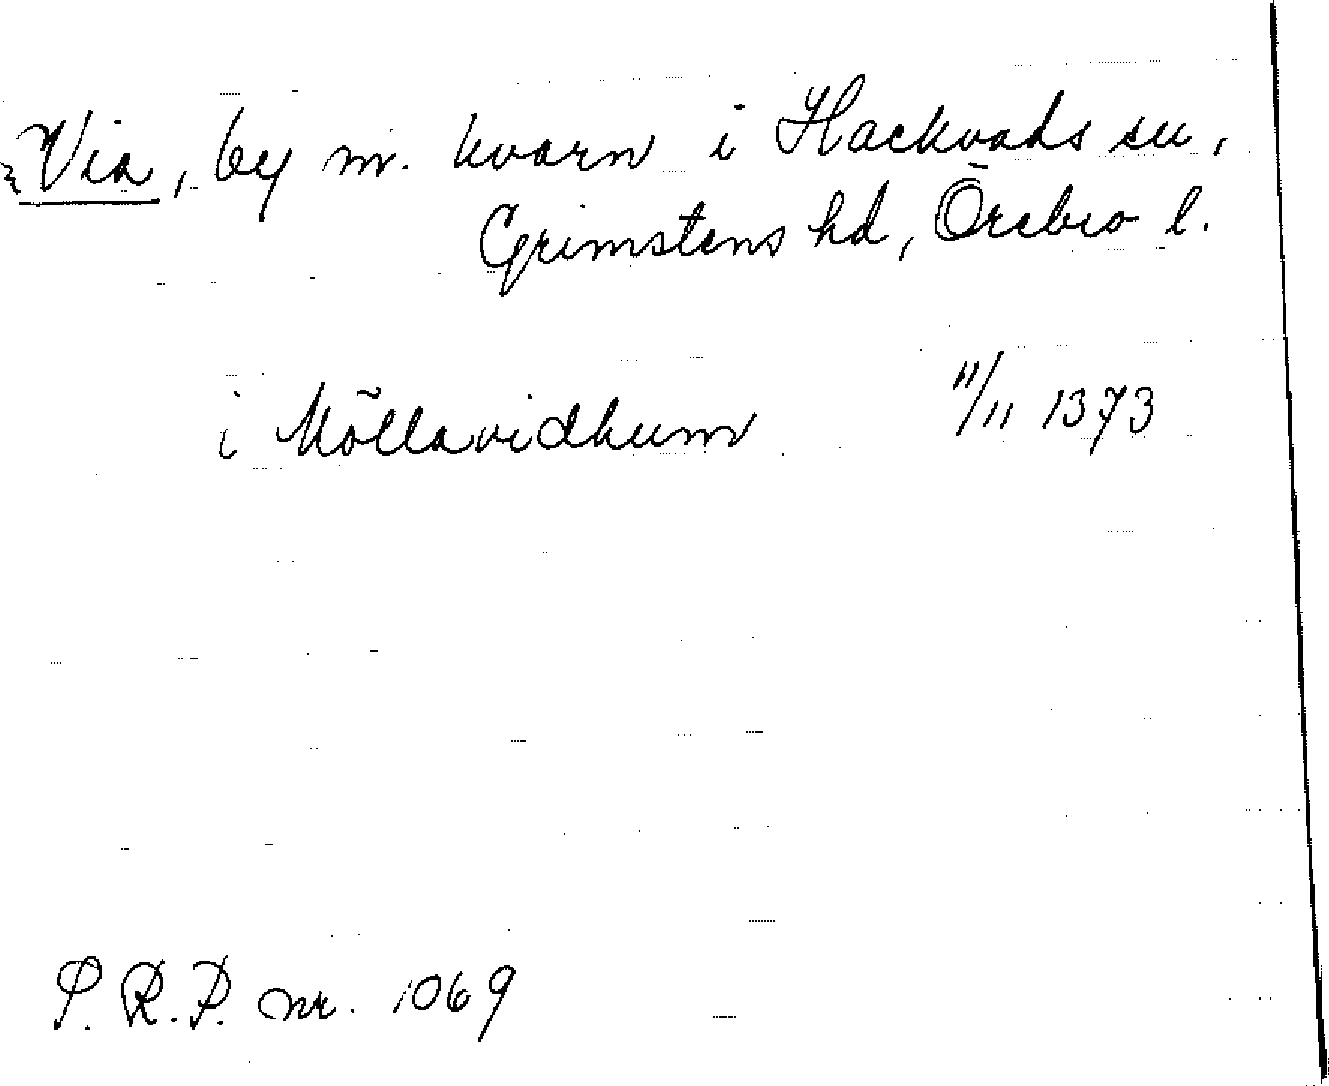 Via, by m. kvarn i Hackvads sn,
Grimstens hd, Örebro l.
i Möllavidhum 11/11 1373
S. R. P. nr. 1069